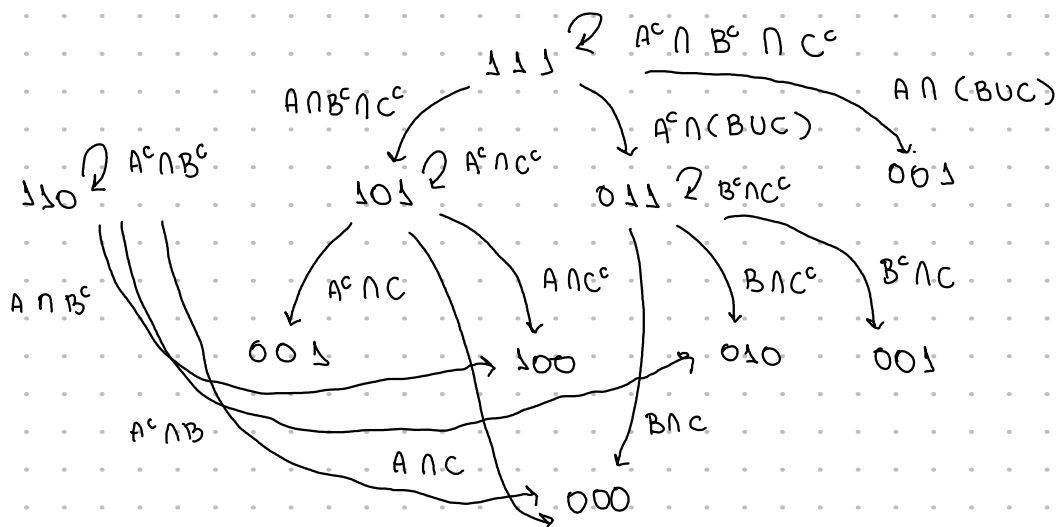 111 Aᶜ ∩ Bᶜ ∩ Cᶜ
A∩Bᶜ∩Cᶜ
Aᶜ∩(BUC)
A∩(BUC)
110 Aᶜ∩Bᶜ
101 Aᶜ∩Cᶜ
011 Bᶜ∩Cᶜ
001
A∩Bᶜ
Aᶜ∩C
A∩Cᶜ
B∩Cᶜ
Bᶜ∩C
001
100
010
001
Aᶜ∩B
A∩C
B∩C
000